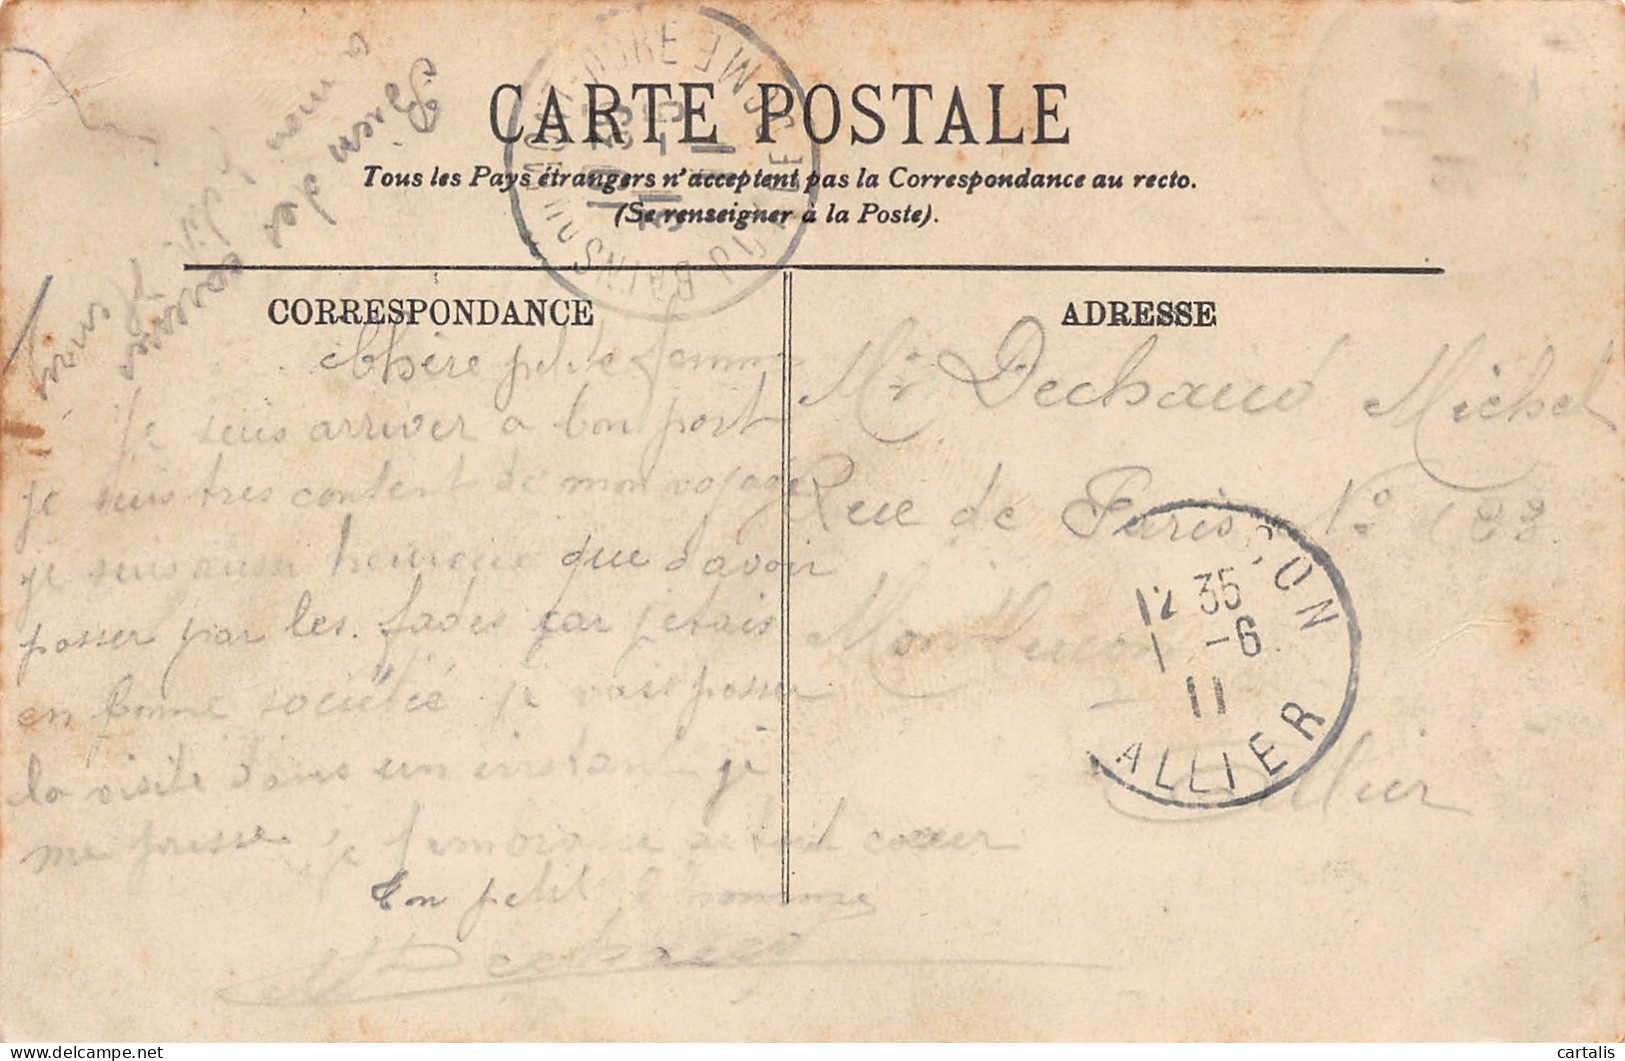 CARTE POSTALE
Tous les Pays étrangers n'acceptent pas la Correspondance au recto.
(Se renseigner à la Poste).
CORRESPONDANCE
ADRESSE
Bien des
caresses
a mon
fils
Chère petite femme
Je suis arriver a bon port
je suis tres content de mon voyage
je suis aussi heureux que d avoir
passer par les fades car jetais
en bonne société je vais passer
la visite dans un instant je
me presse je tembrasse de tout coeur
ton petit homme
M Dechaud
Mr Dechaud Michel
Rue de Paris No
Montlucon
Allier
MONT-DORE
BAINS
PUY DE DOME
CON
12 35
1 -6
11
ALLIER
cartalis